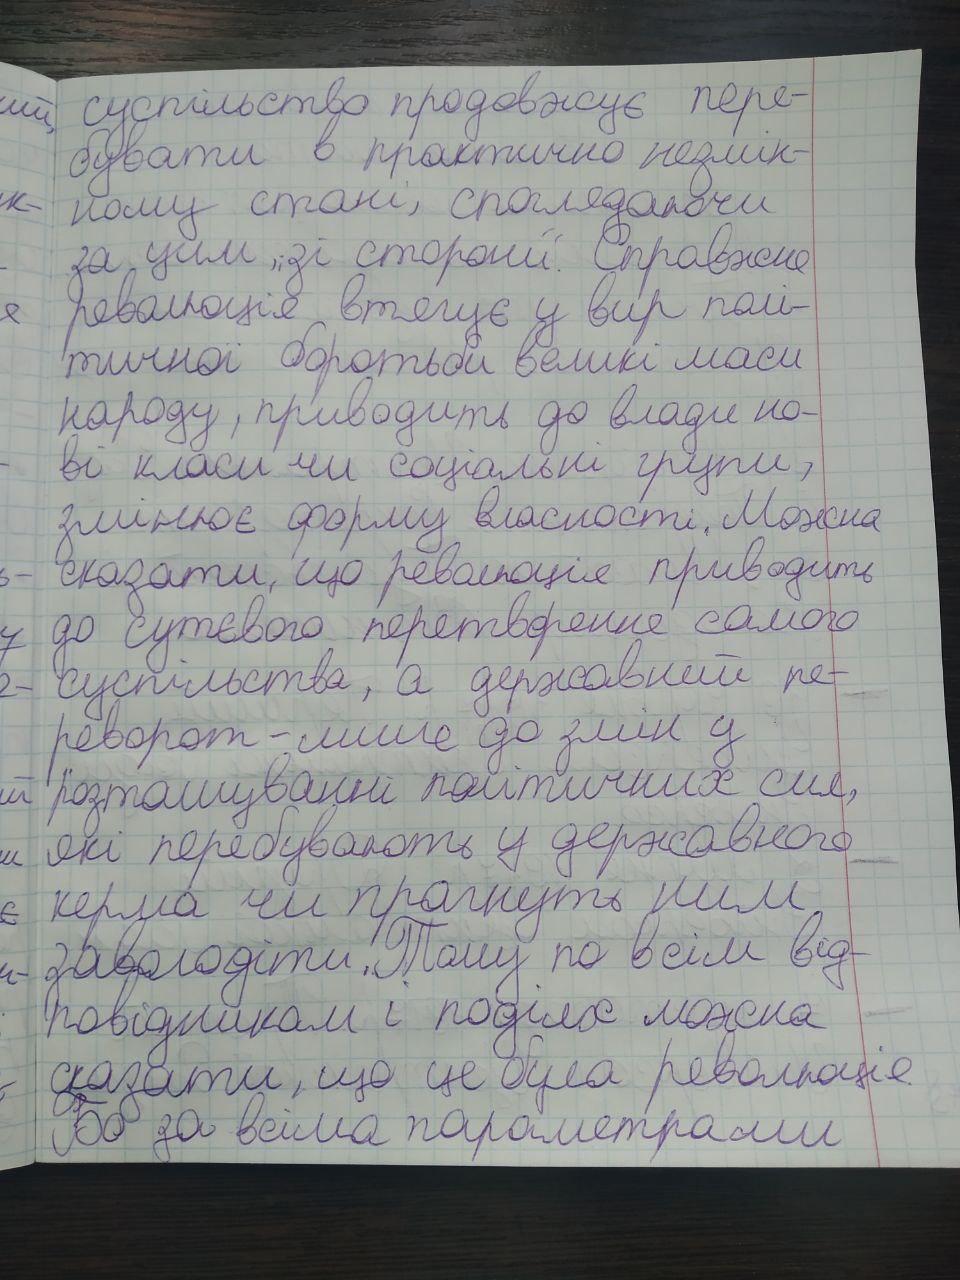 суспільство продовжує пере-
бувати в практично незмін-
ному стані, споглядаючи
за цим „зі сторони". Справжня
революція втягує у вир полі-
тичної боротьби великі маси
народу, приводить до влади но-
ві класи чи соціальні групи,
змінює форму власності. Можна
сказати, що революція приводить
до суттєвого перетворення самого
суспільства, а державний пе-
реворот - лише до змін у
розташуванні політичних сил,
які перебувають у державного
керма чи прагнуть ним
заволодіти. Тому по всім від-
повідникам і поділах можна
сказати, що це була революція
Бо за всіма параметрами